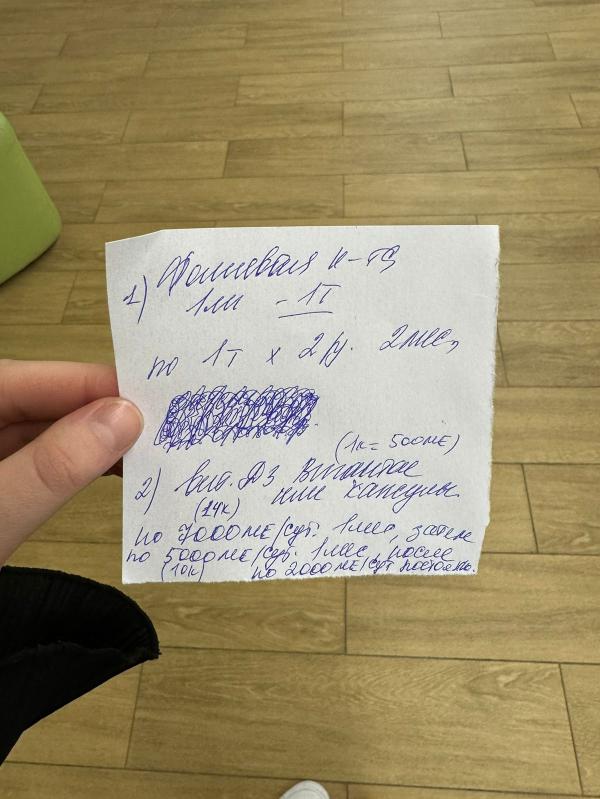 1) Фолиевая к-та
1мг - 1т
по 1т х 2 р/д. 2 мес,
(1к = 500МЕ)
2) вит. Д3 Вигантол
(14к) или капсулы
по 7000МЕ/сут. 1мес, затем
по 5000МЕ/сут. 1мес, после
(10к) по 2000МЕ/сут постоянно.